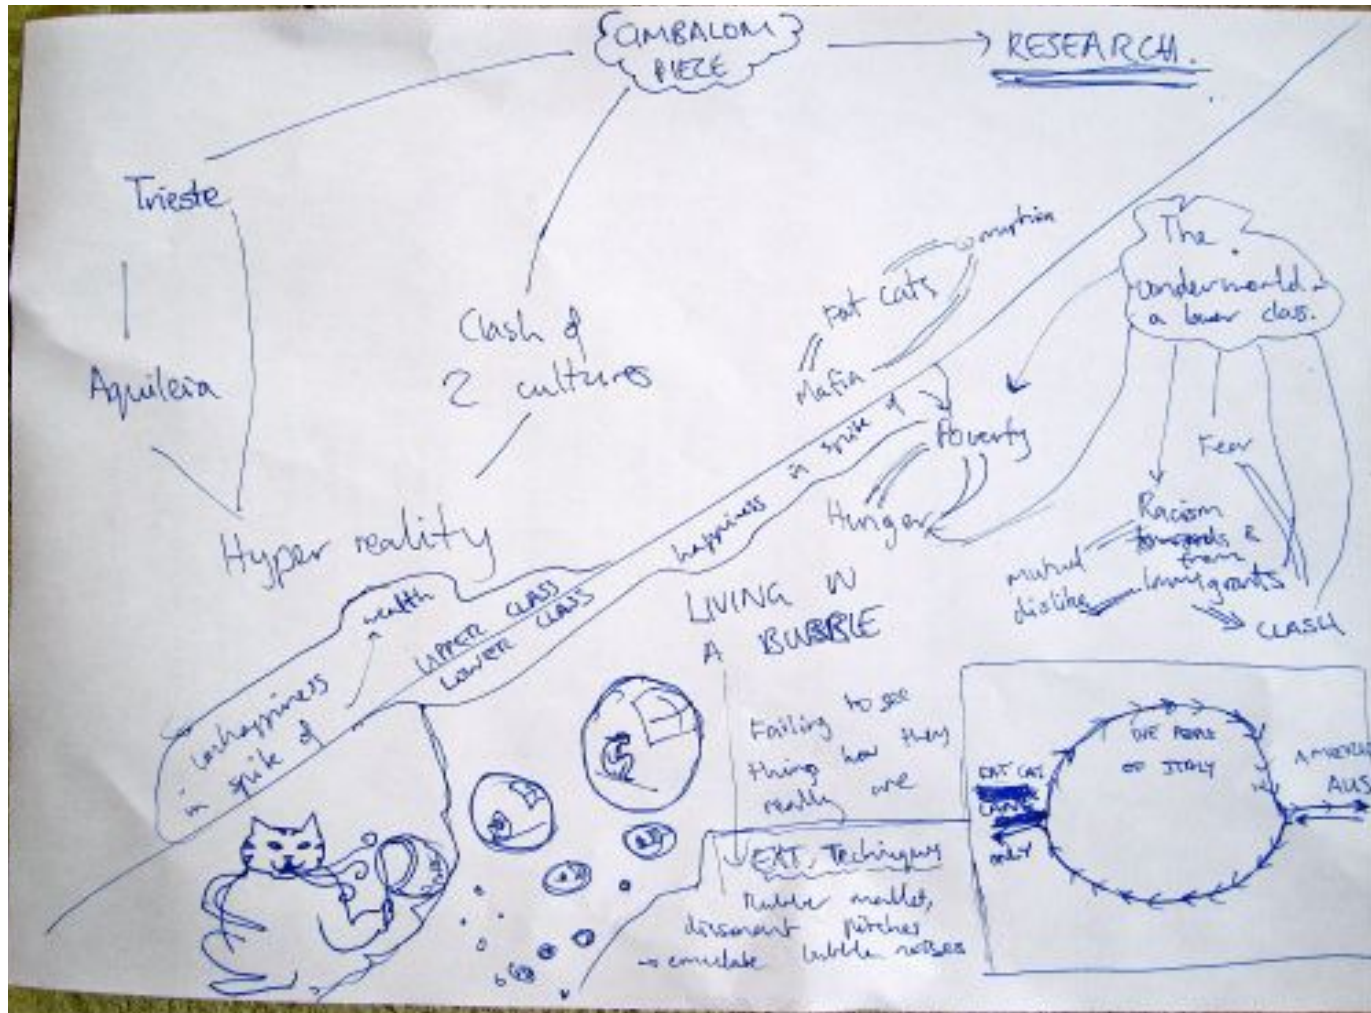 CIMBALOM
PIECE
RESEARCH.
Trieste
Aquileia
Clash of
2 cultures
Hyper reality
Fat Cats
Mafia
The
Underworld -
a lower class.
Poverty
Hunger
Fear
Racism
towards &
from
Immigrants
mutual
dislike
CLASH
happiness in spite of
wealth
UPPER CLASS
LOWER CLASS
unhappiness
in spite of
LIVING IN
A BUBBLE
Failing to see
thing how they
really are
EXT. Techniques
Rubber mallet,
dissonant pitches
→ emulate bubble noises
FAT CAT
ONLY
OF ITALY